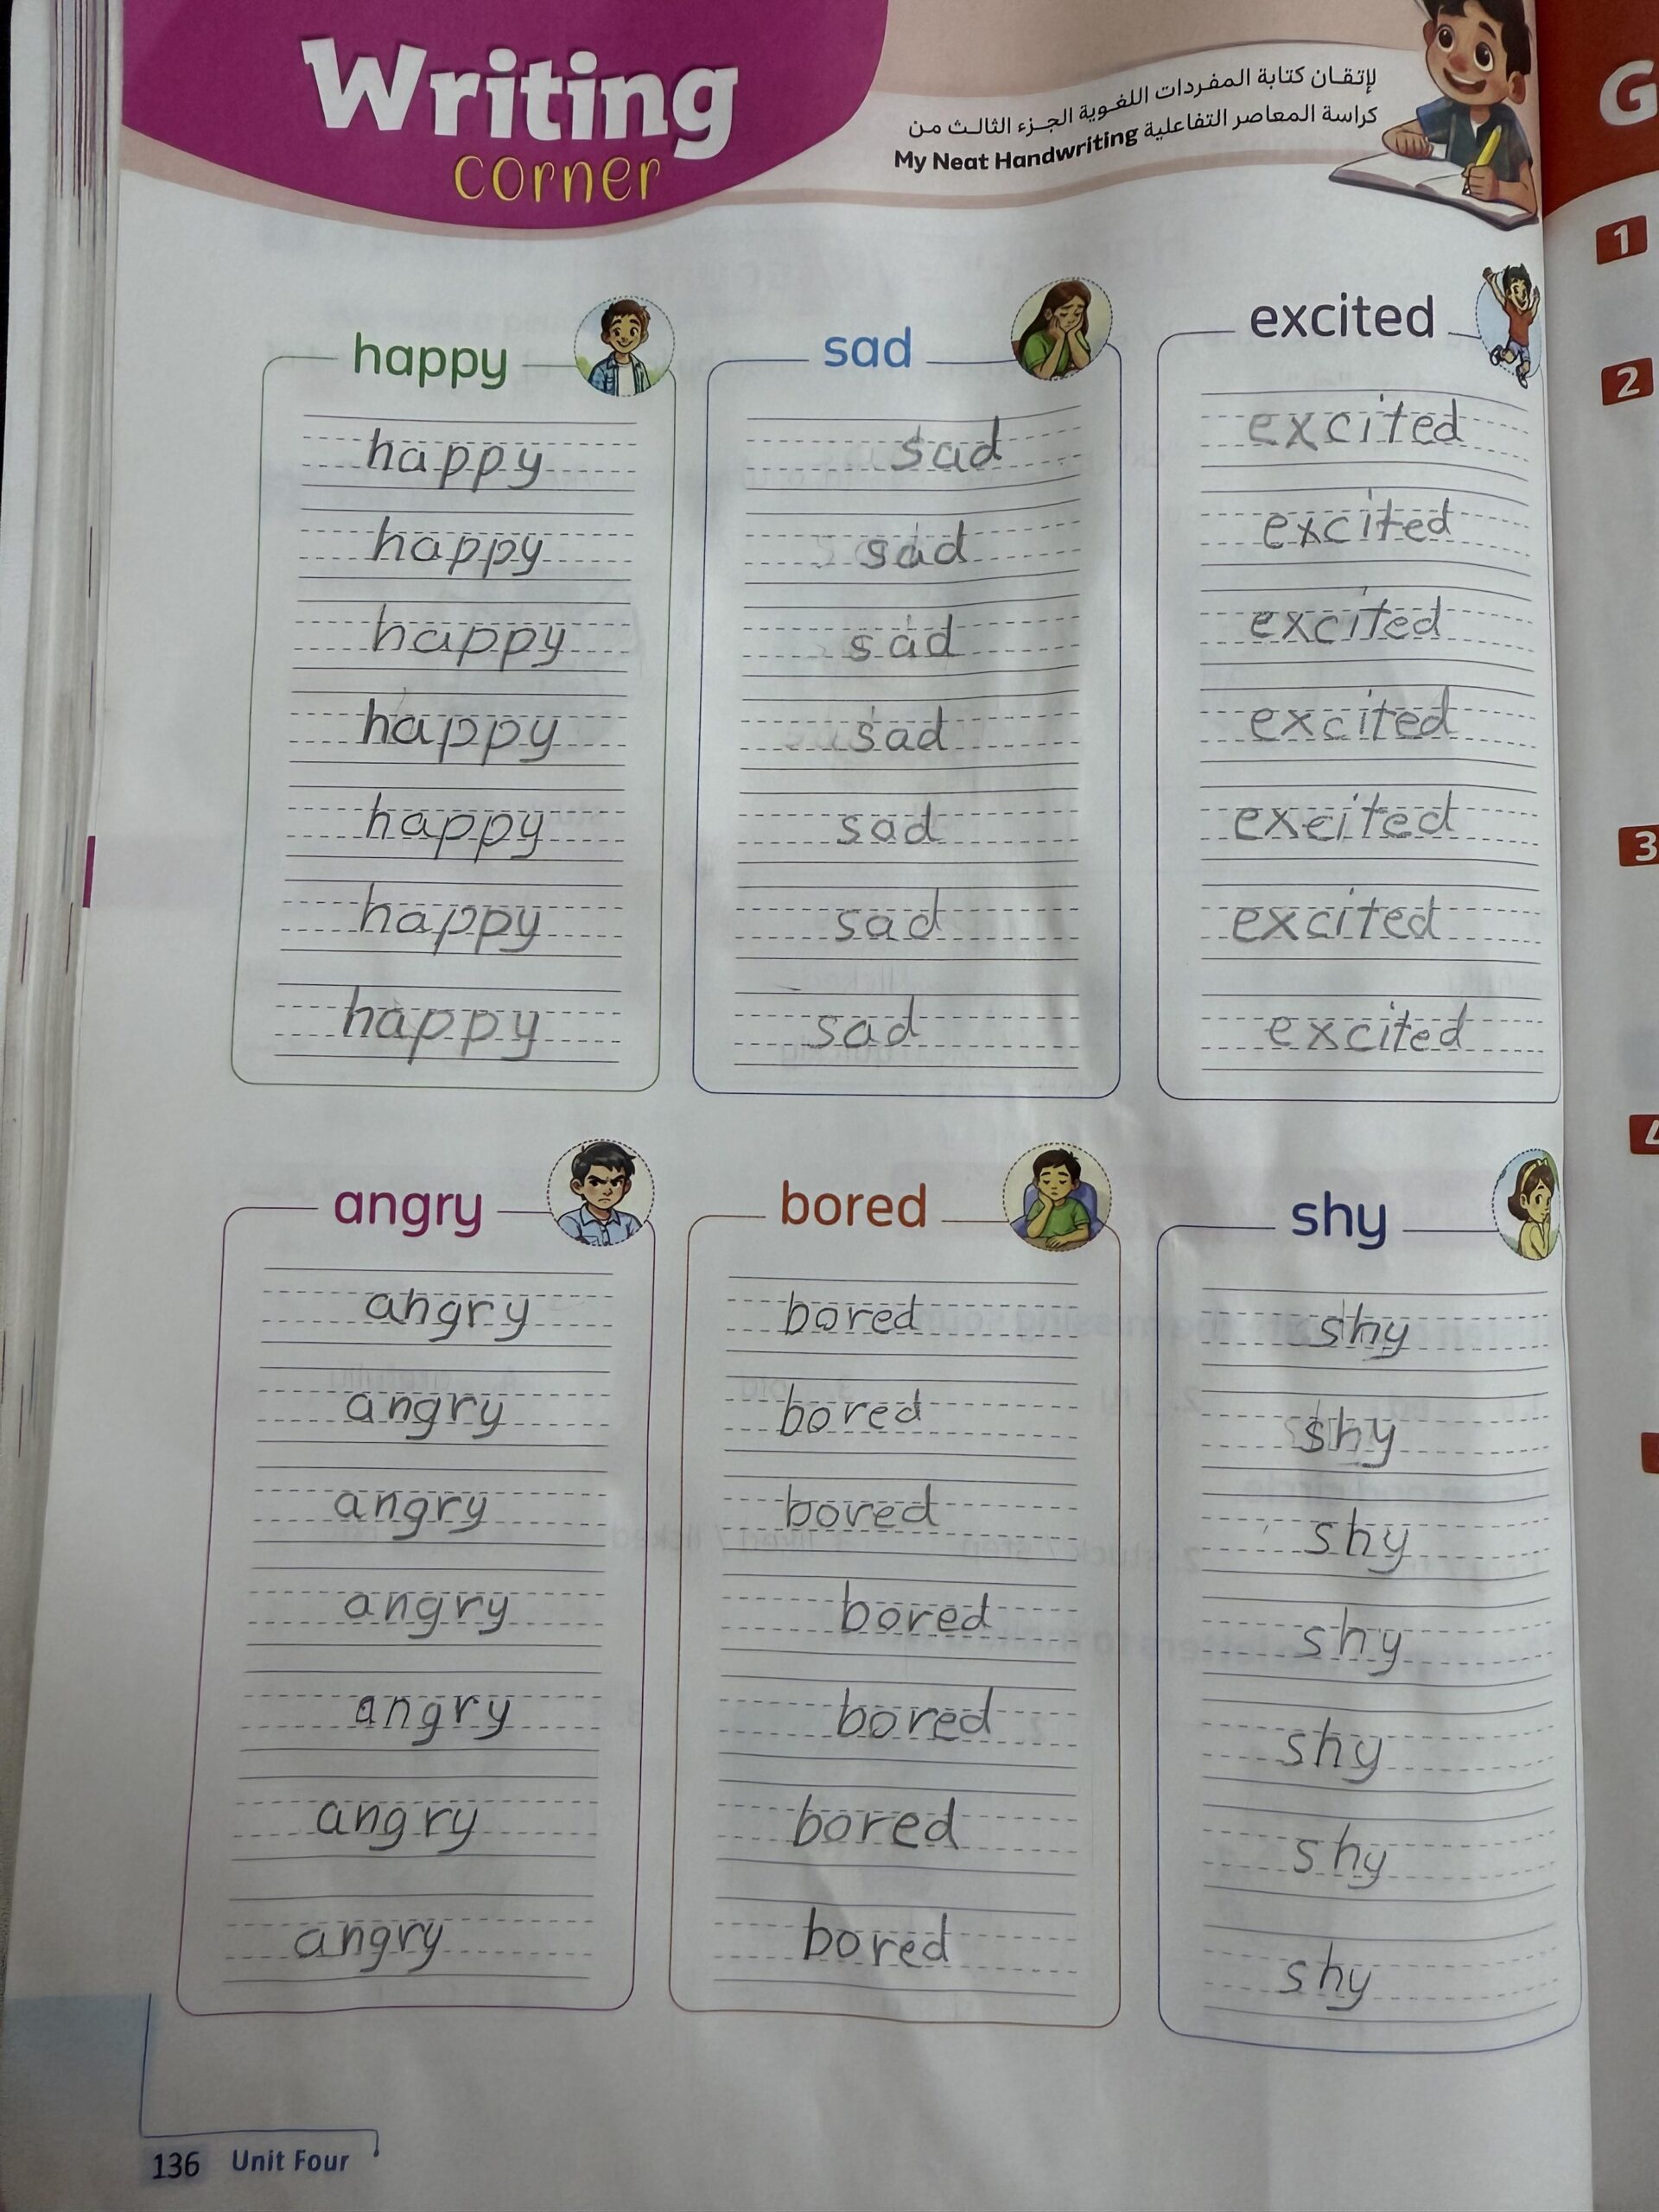 Writing
corner
لإتقـان كتابة المفـردات اللغـوية الجـزء الثالـث من
كراسة المعاصر التفاعلية My Neat Handwriting
happy
happy
happy
happy
happy
happy
happy
happy
sad
sad
sad
sad
sad
sad
sad
sad
excited
excited
excited
excited
excited
excited
excited
excited
angry
angry
angry
angry
angry
angry
angry
angry
bored
bored
bored
bored
bored
bored
bored
bored
shy
shy
shy
shy
shy
shy
shy
shy
136 Unit Four
G
1
2
3
4